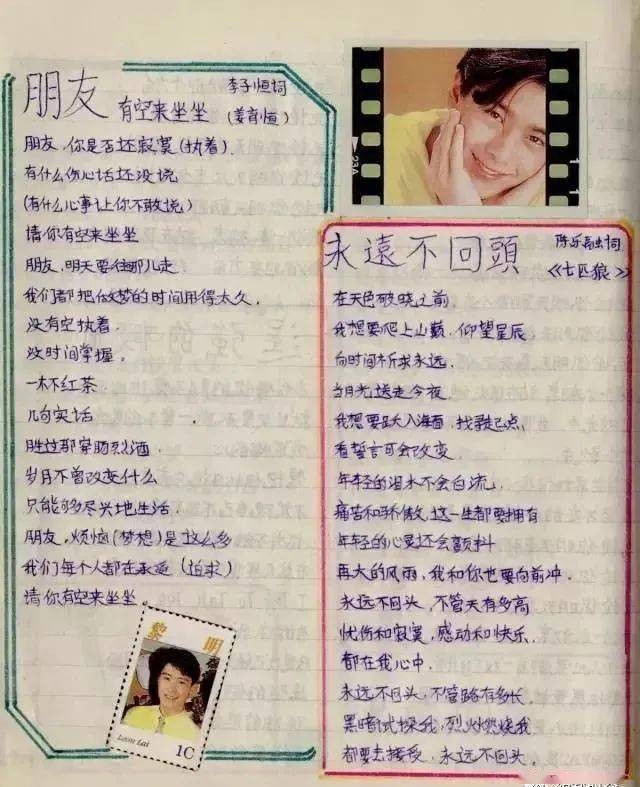 朋友
有空来坐坐
李子恒词
(姜育恒)
朋友,你是否还寂寞(执着)
有什么伤心话还没说
(有什么心事让你不敢说)
请你有空来坐坐
朋友,明天要往那儿走
我们都把做梦的时间用得太久,
没有空执着.
没时间掌握.
一杯红茶
几句实话
胜过那穿肠烈酒.
岁月不曾改变什么
只能够尽兴地生活.
朋友,烦恼(梦想)是这么多
我们每个人都在承受(追求)
请你有空来坐坐.
黎明
Leon Lai
1C
23A
永遠不回頭
陈乐融词
《七匹狼》
在天色破晓之前
我想要爬上山巅,仰望星辰,
向时间祈求永远.
当月光送走今夜.
我想要跃入海面,找寻起点,
看誓言可会改变.
年轻的泪水不会白流,
痛苦和骄傲,这一生都要拥有
年轻的心灵还会颤抖
再大的风雨,我和你也要向前冲.
永远不回头,不管天有多高
忧伤和寂寞,感动和快乐.
都在我心中.
永远不回头,不管路有多长.
黑暗试探我,烈火燃烧我
都要去接受,永远不回头